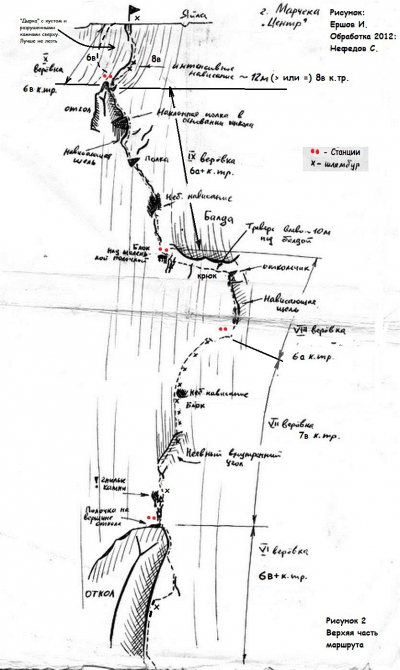 "Дырка" с кустом и
разрушенными
камнями сверху.
Лучше не лезть
Яйла
г. Марчека
"Центр"
Рисунок:
Ершов И.
Обработка 2012:
Нефедов С.
X
верёвка
6в
8в
интенсивное
нависание ~ 12м (> или =) 8в к.тр.
6в к.тр.
откол
Наклонная полка в
основании
Нависающая
щель
полка
IX верёвка
6а+ к.тр.
- Станции
х - шлямбур
Неб. нависание
Балда
Траверс влево ~10м
под балдой
Блок
над маленькой полочкой
крюк
откольчик
Нависающая
щель
VIII верёвка
6а к.тр.
Неб. нависание
Блок
VII верёвка
7в к.тр.
Неявный внутренний
угол
! гнилые
камни
Полочка на
вершине
откола
VI верёвка
6в+ к.тр.
откол
Рисунок 2
Верхняя часть
маршрута